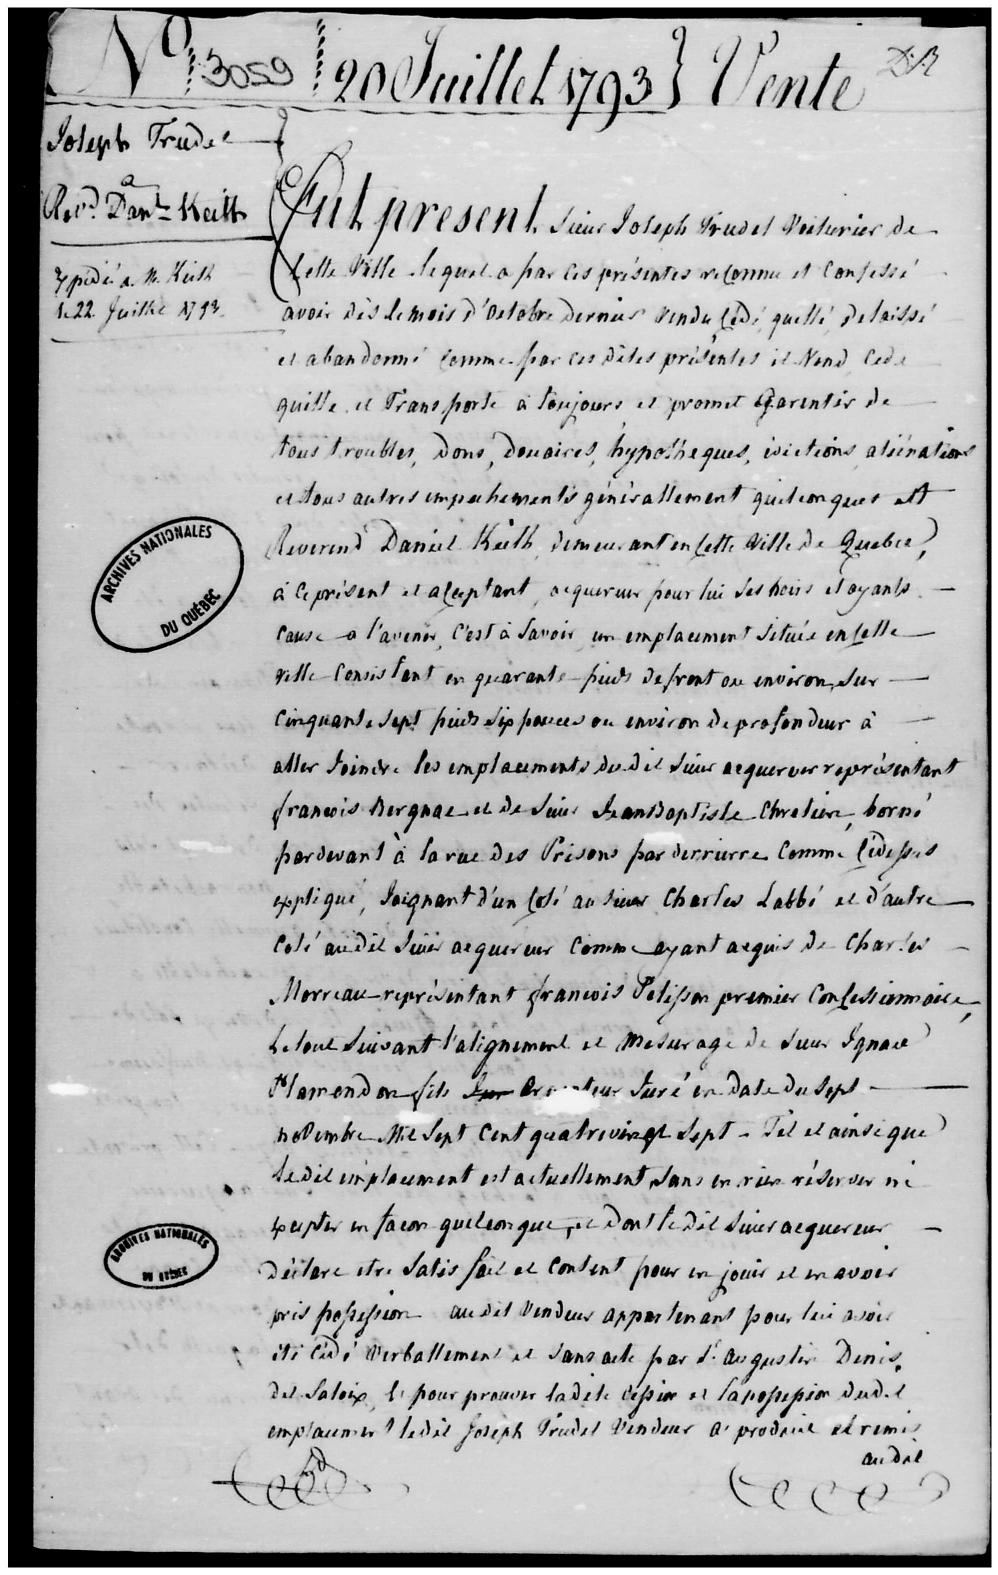 No 3059 20 Juillet 1793 } Vente
Joseph Trudel
a
Revd. Danl. Keith
Expédié a M. Keith
le 22 Juillet 1793
Fut present Sieur Joseph Trudel Voiturier de
cette Ville lequel a par ces présentes reconnu et Confessé
avoir dès le mois d'Octobre dernier Vendu Cédé, quitté, delaissé
et abandonné Comme par ces dites présentes il Vend, Cede
quitte et Transporte à toujours et promet Garentir de
tous troubles, Dons, Douaires, hypotheques, évictions, aliénations
et tous autres empechements générallement quelconques au
Reverend Daniel Keith, demeurant en Cette Ville de Quebec,
à Ce présent et acceptant, acquereur pour lui ses hoirs et ayants
Cause a l'avenir, C'est à Savoir, un emplacement Situé en Cette
ville Consistant en quarante pieds de front ou environ, sur
Cinquante Sept pieds Six pouces ou environ de profondeur à
aller Joindre les emplacements du dit Sieur acquereur représentant
françois Bergnac et de Sieur Jean Baptiste Chretien, borné
pardevant à la rue des Prisons par derrierre Comme Cidessus
expliqué, Joignant d'un Coté au Sieur Charles Labbé et d'autre
Coté audit Sieur acquereur Comme ayant acquis de Charles
Morreau représentant françois Pelisson premier Concessionnaire,
Le tout Suivant l'alignement et Mesurage de Sieur Ignace
Plamondon fils Arpenteur Juré en Date du Sept
novembre Mil Sept Cent quatrevingt Sept - Tel et ainsi que
Le dit emplacement est actuellement, Sans en rien réserver ni
excepter en facon quelconque, et Dont le dit Sieur acquereur
Déclare etre Satisfait et Content pour en jouir et en avoir
pris possession audit Vendeur appartenant pour lui avoir
été Cédé Verballement et Sans acte par Sr. Augustin Denis,
dit Saloix, et pour prouver ladite Cession et la possession dudit
emplacement ledit Joseph Trudel Vendeur a produit et remis
audit
ARCHIVES NATIONALES
DU QUÉBEC
ARCHIVES NATIONALES
DU QUÉBEC